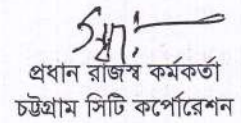 প্রধান রাজস্ব কর্মকর্তা
চট্টগ্রাম সিটি কর্পোরেশন